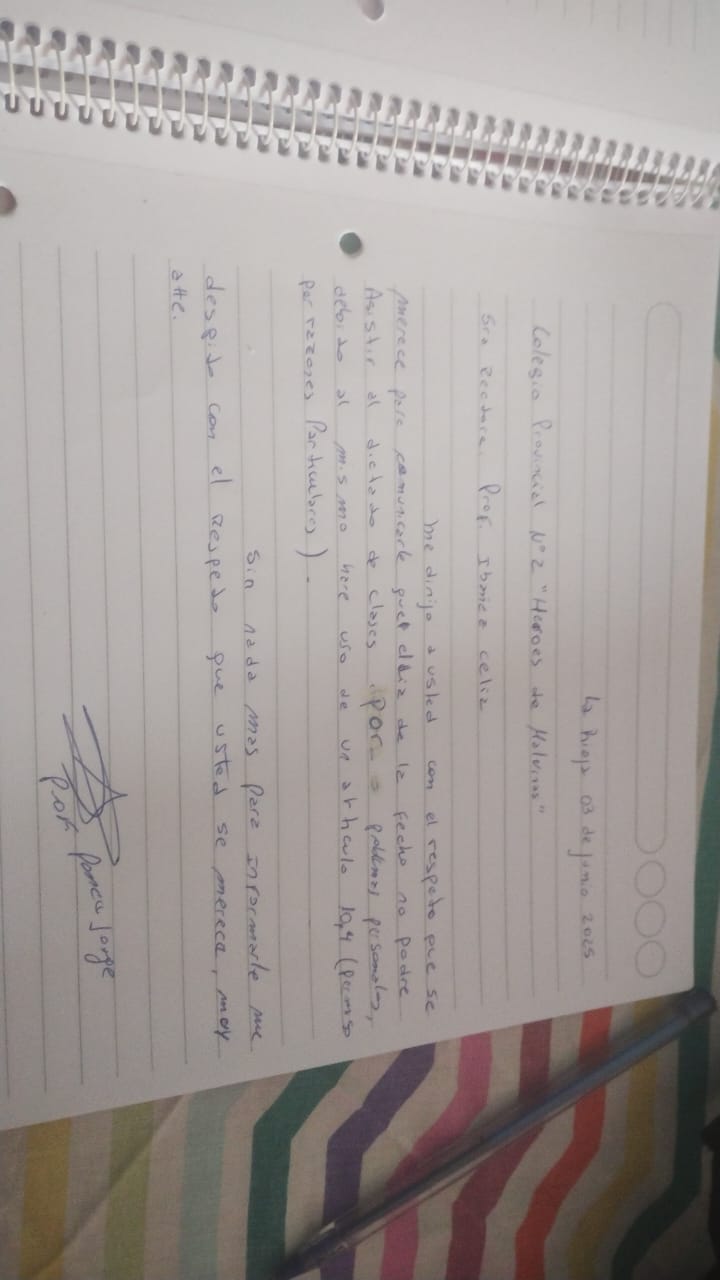 La Rioja 03 de junio 2025
Colegio Provincial N°2 "Heroes de Malvinas"
Sra Rectora. Prof. Ibañez Celia
me dirijo a usted con el respeto que se
merece para comunicarle que el día de la fecha no podre
Asistir al dictado de clases. por problemas personales,
debido al mismo hare uso de un articulo 10,4 (permiso
por razones Particulares).
Sin nada mas para informarle me
despido con el Respeto que usted se mereca, muy
atte.
Prof.
Jorge